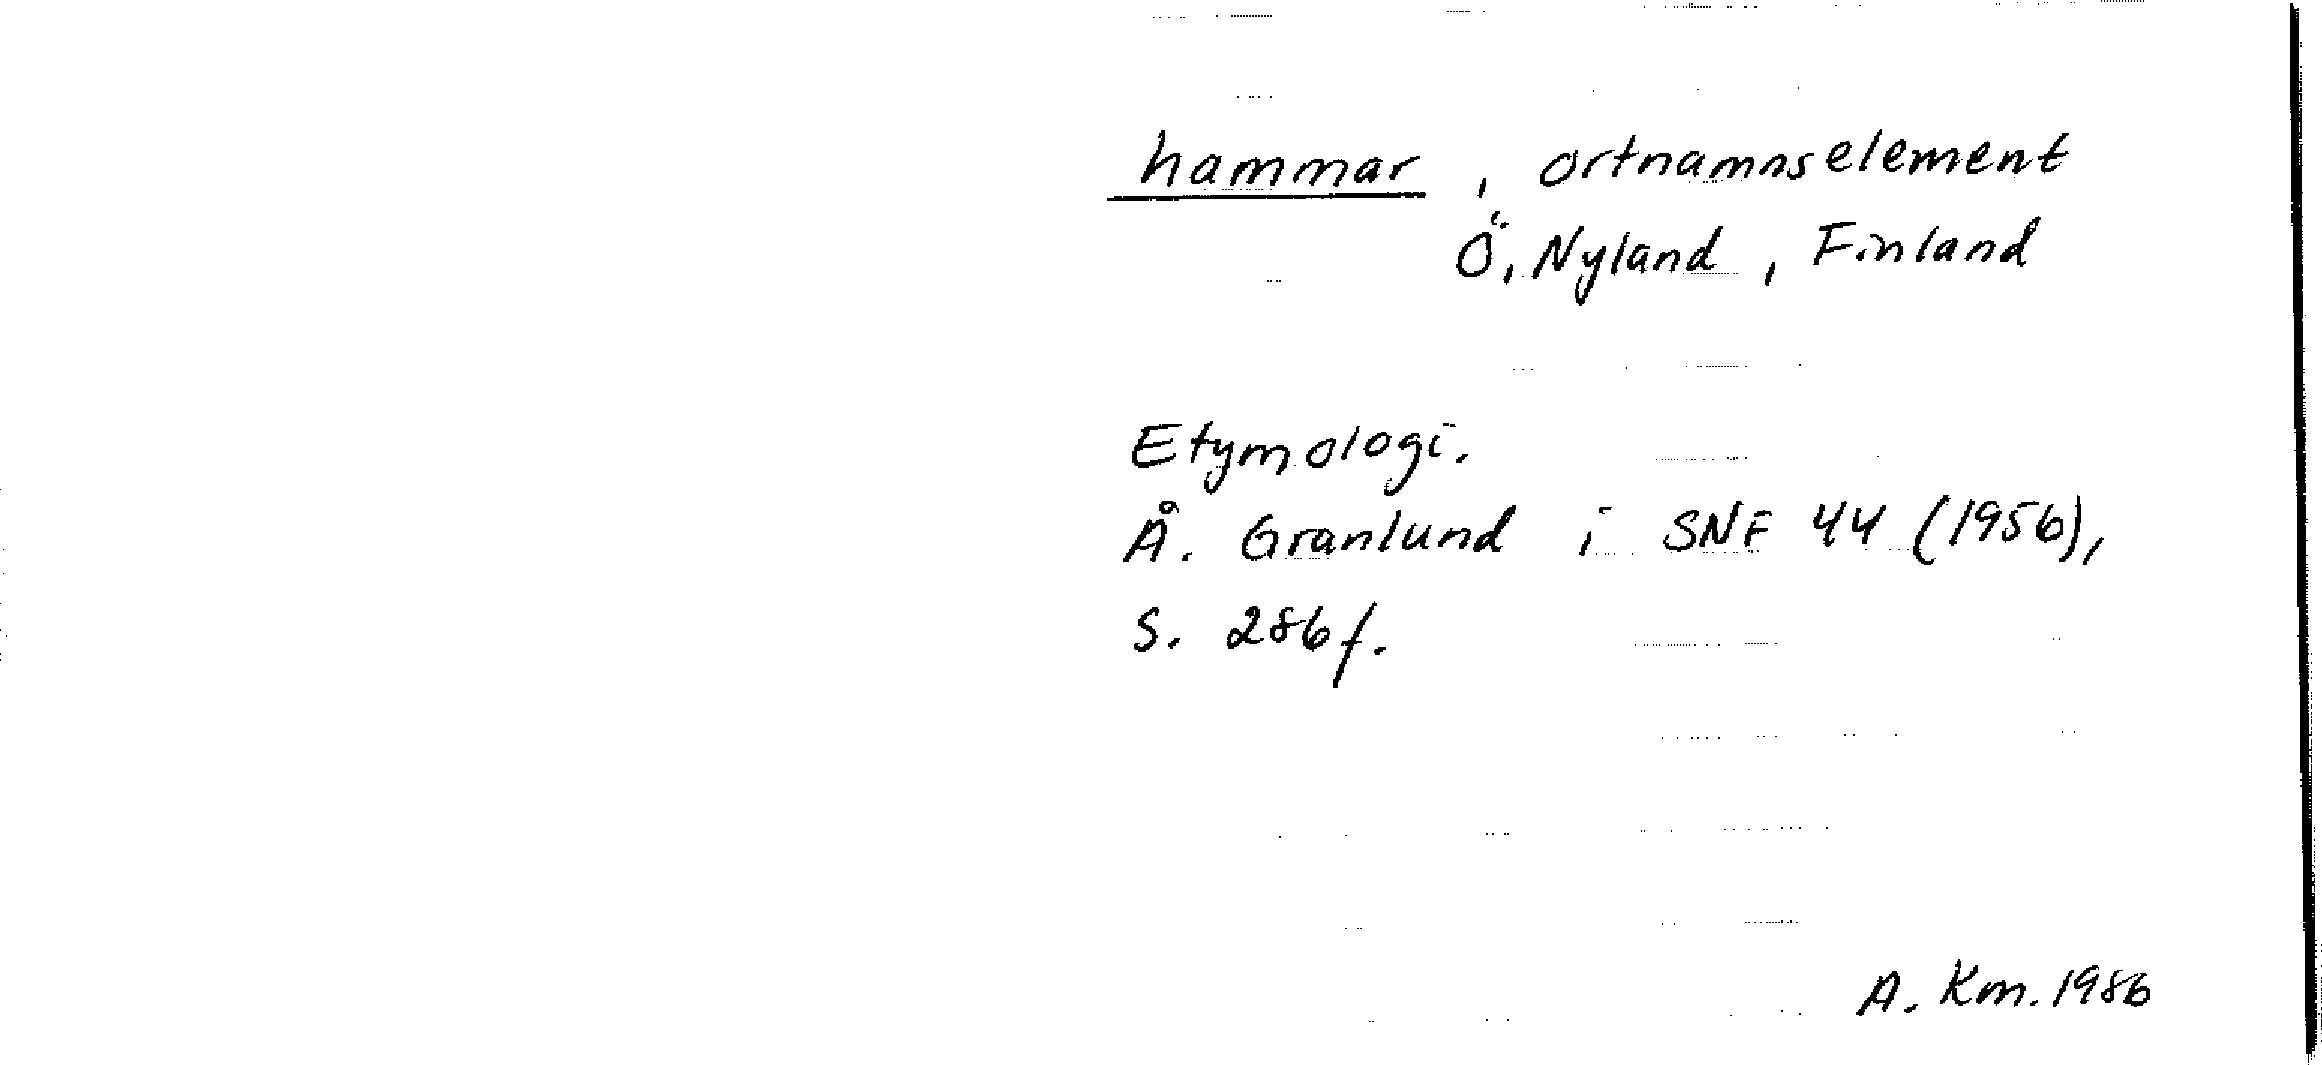 hammar, ortnamnselement
Ö, Nyland, Finland
Etymologi.
Å. Granlund i SNF 44 (1956),
S. 286f.
A. Km. 1986